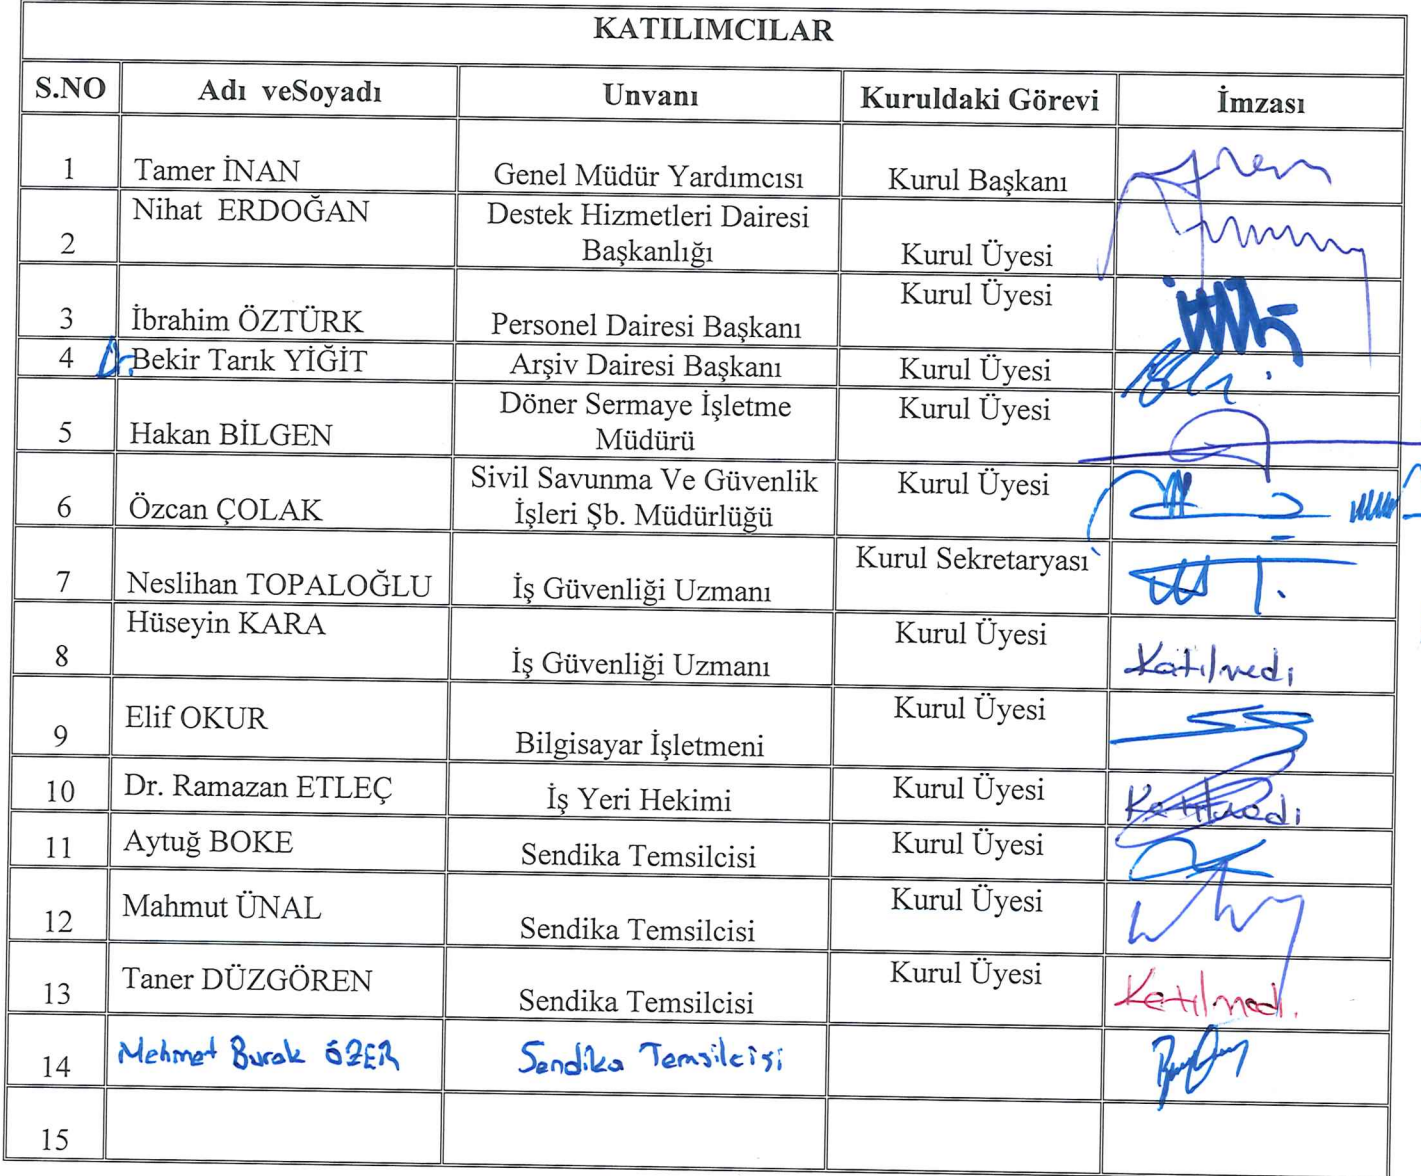 KATILIMCILAR
S.NO Adı veSoyadı Unvanı Kuruldaki Görevi İmzası
1 Tamer İNAN Genel Müdür Yardımcısı Kurul Başkanı
2 Nihat ERDOĞAN Destek Hizmetleri Dairesi
Başkanlığı Kurul Üyesi
3 İbrahim ÖZTÜRK Personel Dairesi Başkanı Kurul Üyesi
4 Dr. Bekir Tarık YİĞİT Arşiv Dairesi Başkanı Kurul Üyesi
5 Hakan BİLGEN Döner Sermaye İşletme
Müdürü Kurul Üyesi
6 Özcan ÇOLAK Sivil Savunma Ve Güvenlik
İşleri Şb. Müdürlüğü Kurul Üyesi
7 Neslihan TOPALOĞLU İş Güvenliği Uzmanı Kurul Sekretaryası
8 Hüseyin KARA İş Güvenliği Uzmanı Kurul Üyesi Katılmadı
9 Elif OKUR Bilgisayar İşletmeni Kurul Üyesi
10 Dr. Ramazan ETLEÇ İş Yeri Hekimi Kurul Üyesi Katılmadı
11 Aytuğ BOKE Sendika Temsilcisi Kurul Üyesi
12 Mahmut ÜNAL Sendika Temsilcisi Kurul Üyesi
13 Taner DÜZGÖREN Sendika Temsilcisi Kurul Üyesi Katılmadı.
14 Mehmet Burak ÖZER Sendika Temsilcisi
15